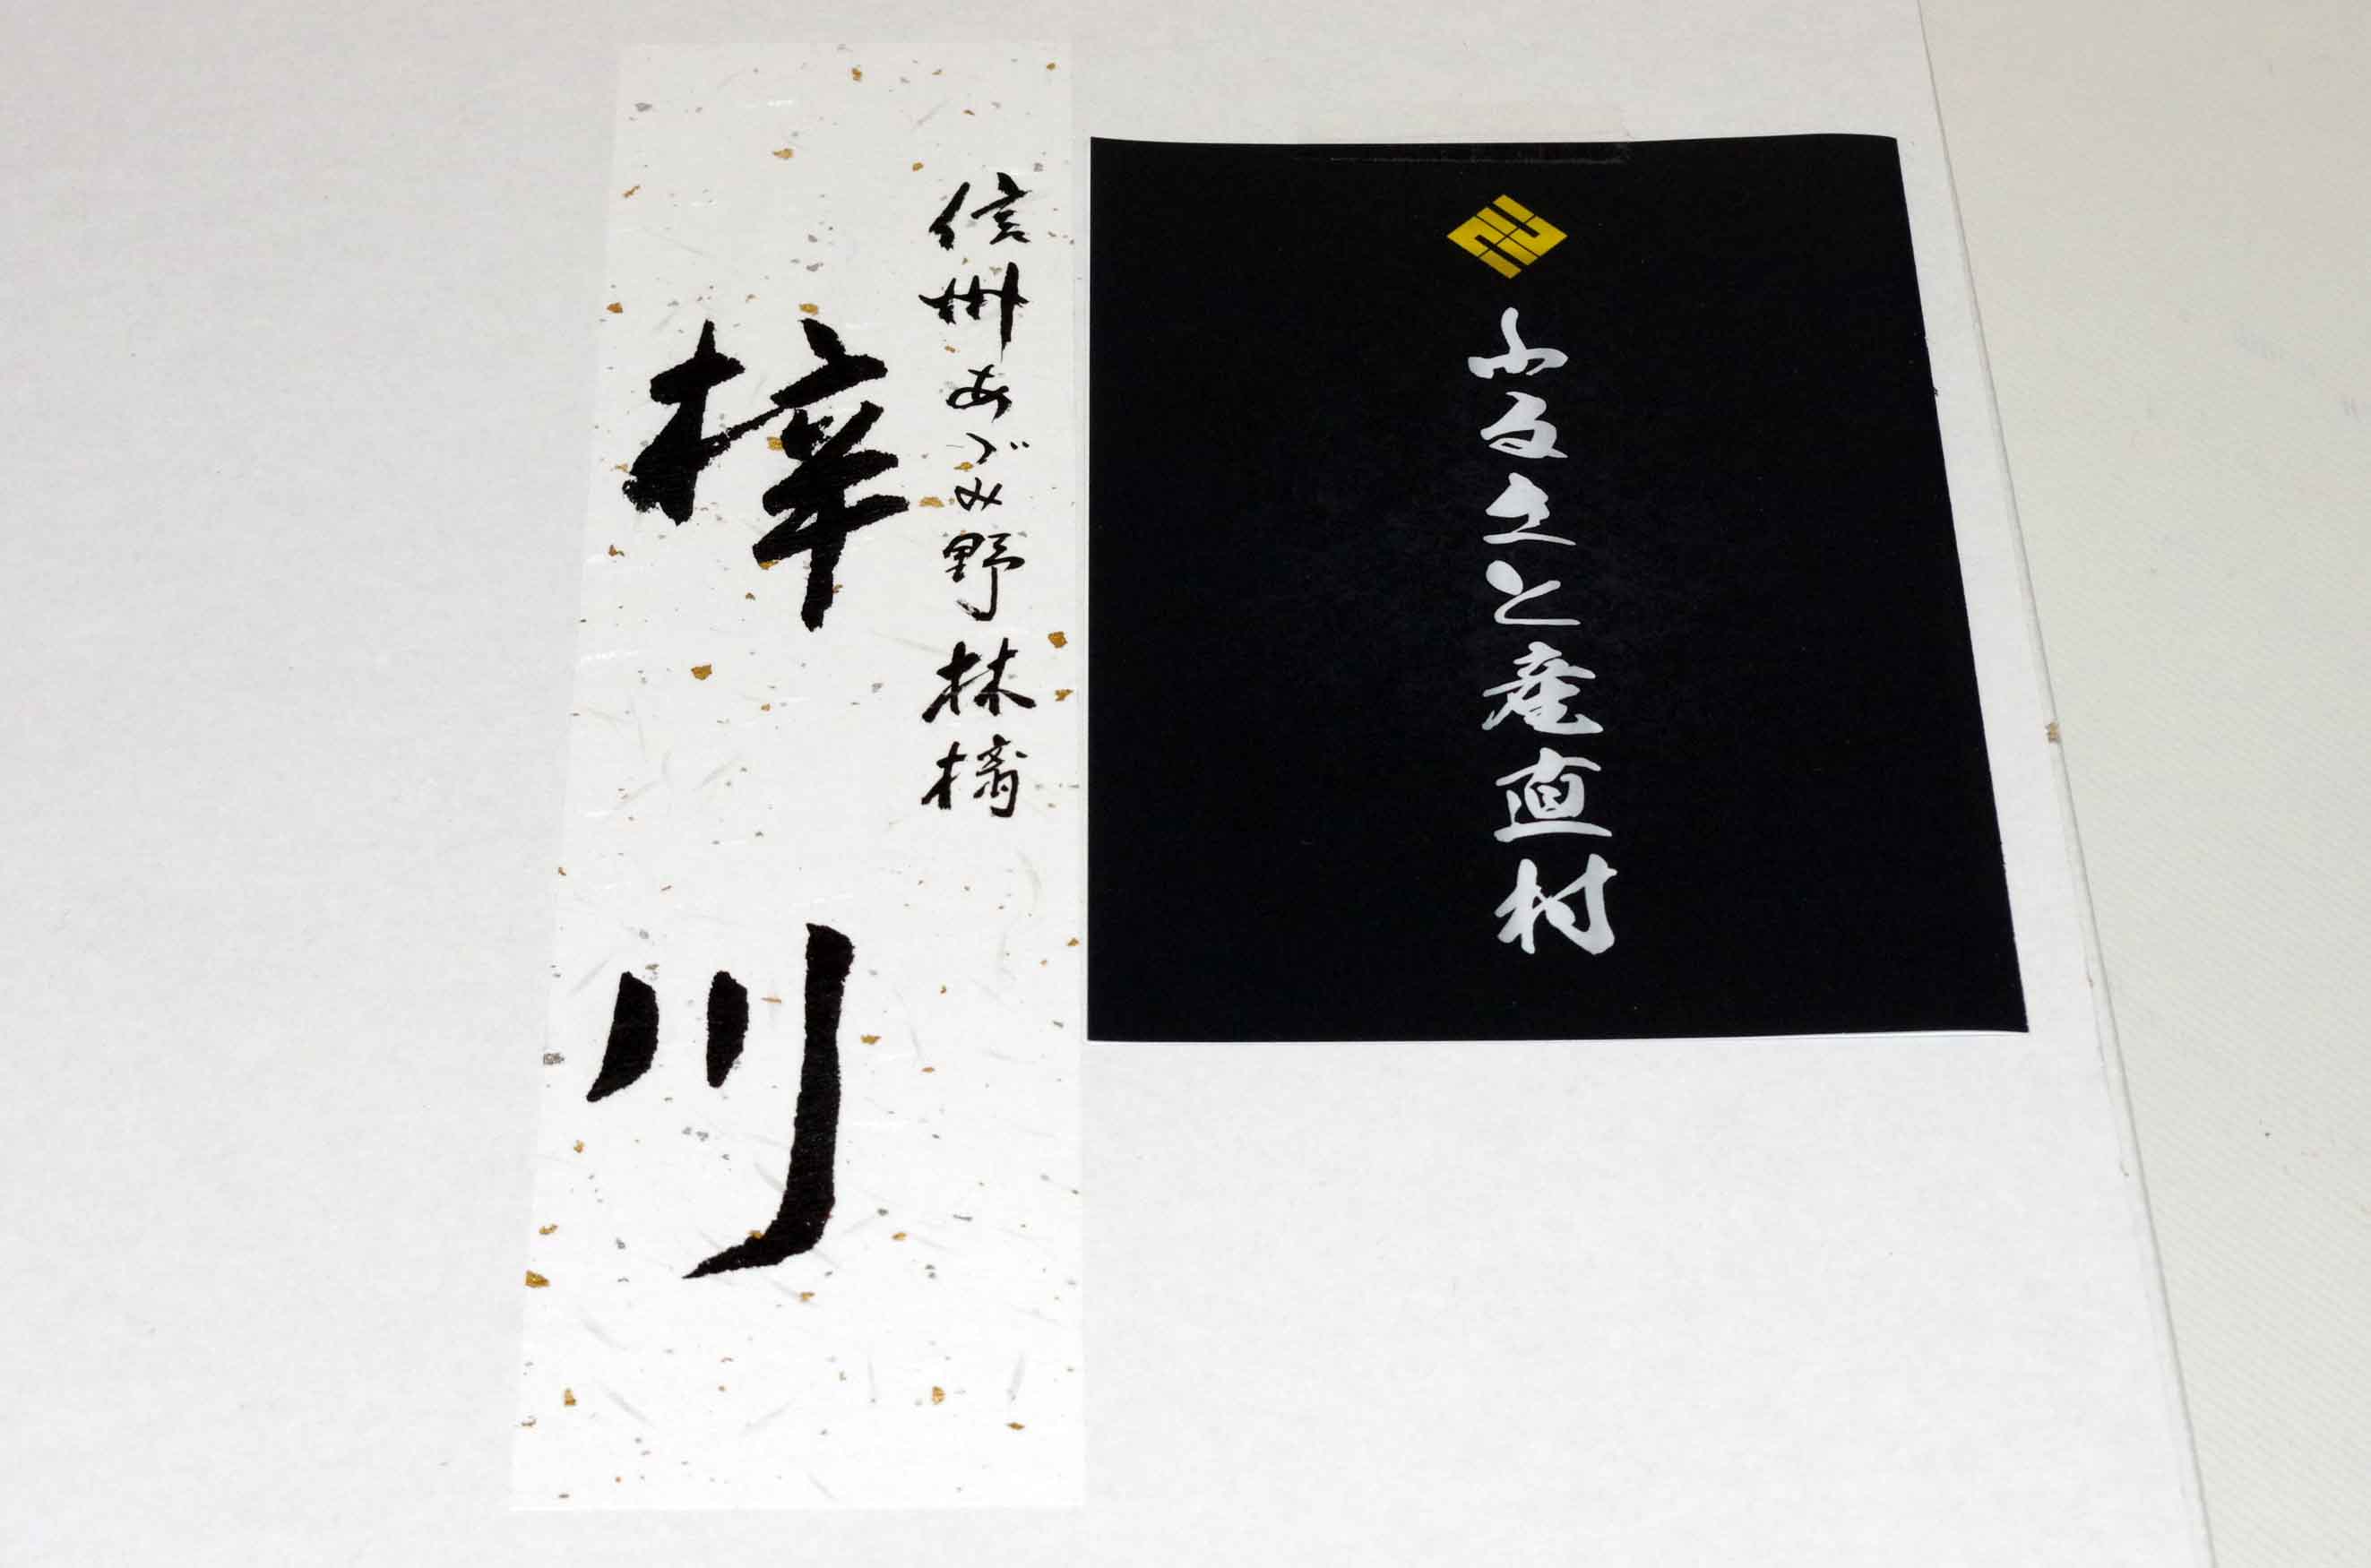 ふるさと産直村
信州あづみ野林檎
梓川